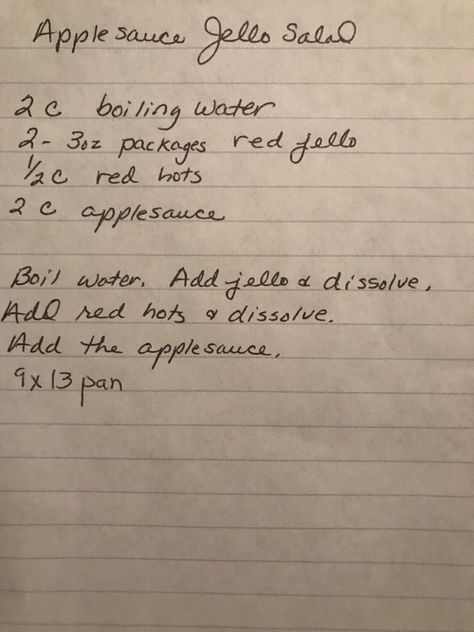 Applesauce Jello Salad
2 c boiling water
2- 3oz packages red jello
1/2 c red hots
2 c applesauce
Boil water. Add jello & dissolve.
Add red hots & dissolve.
Add the applesauce.
9x13 pan